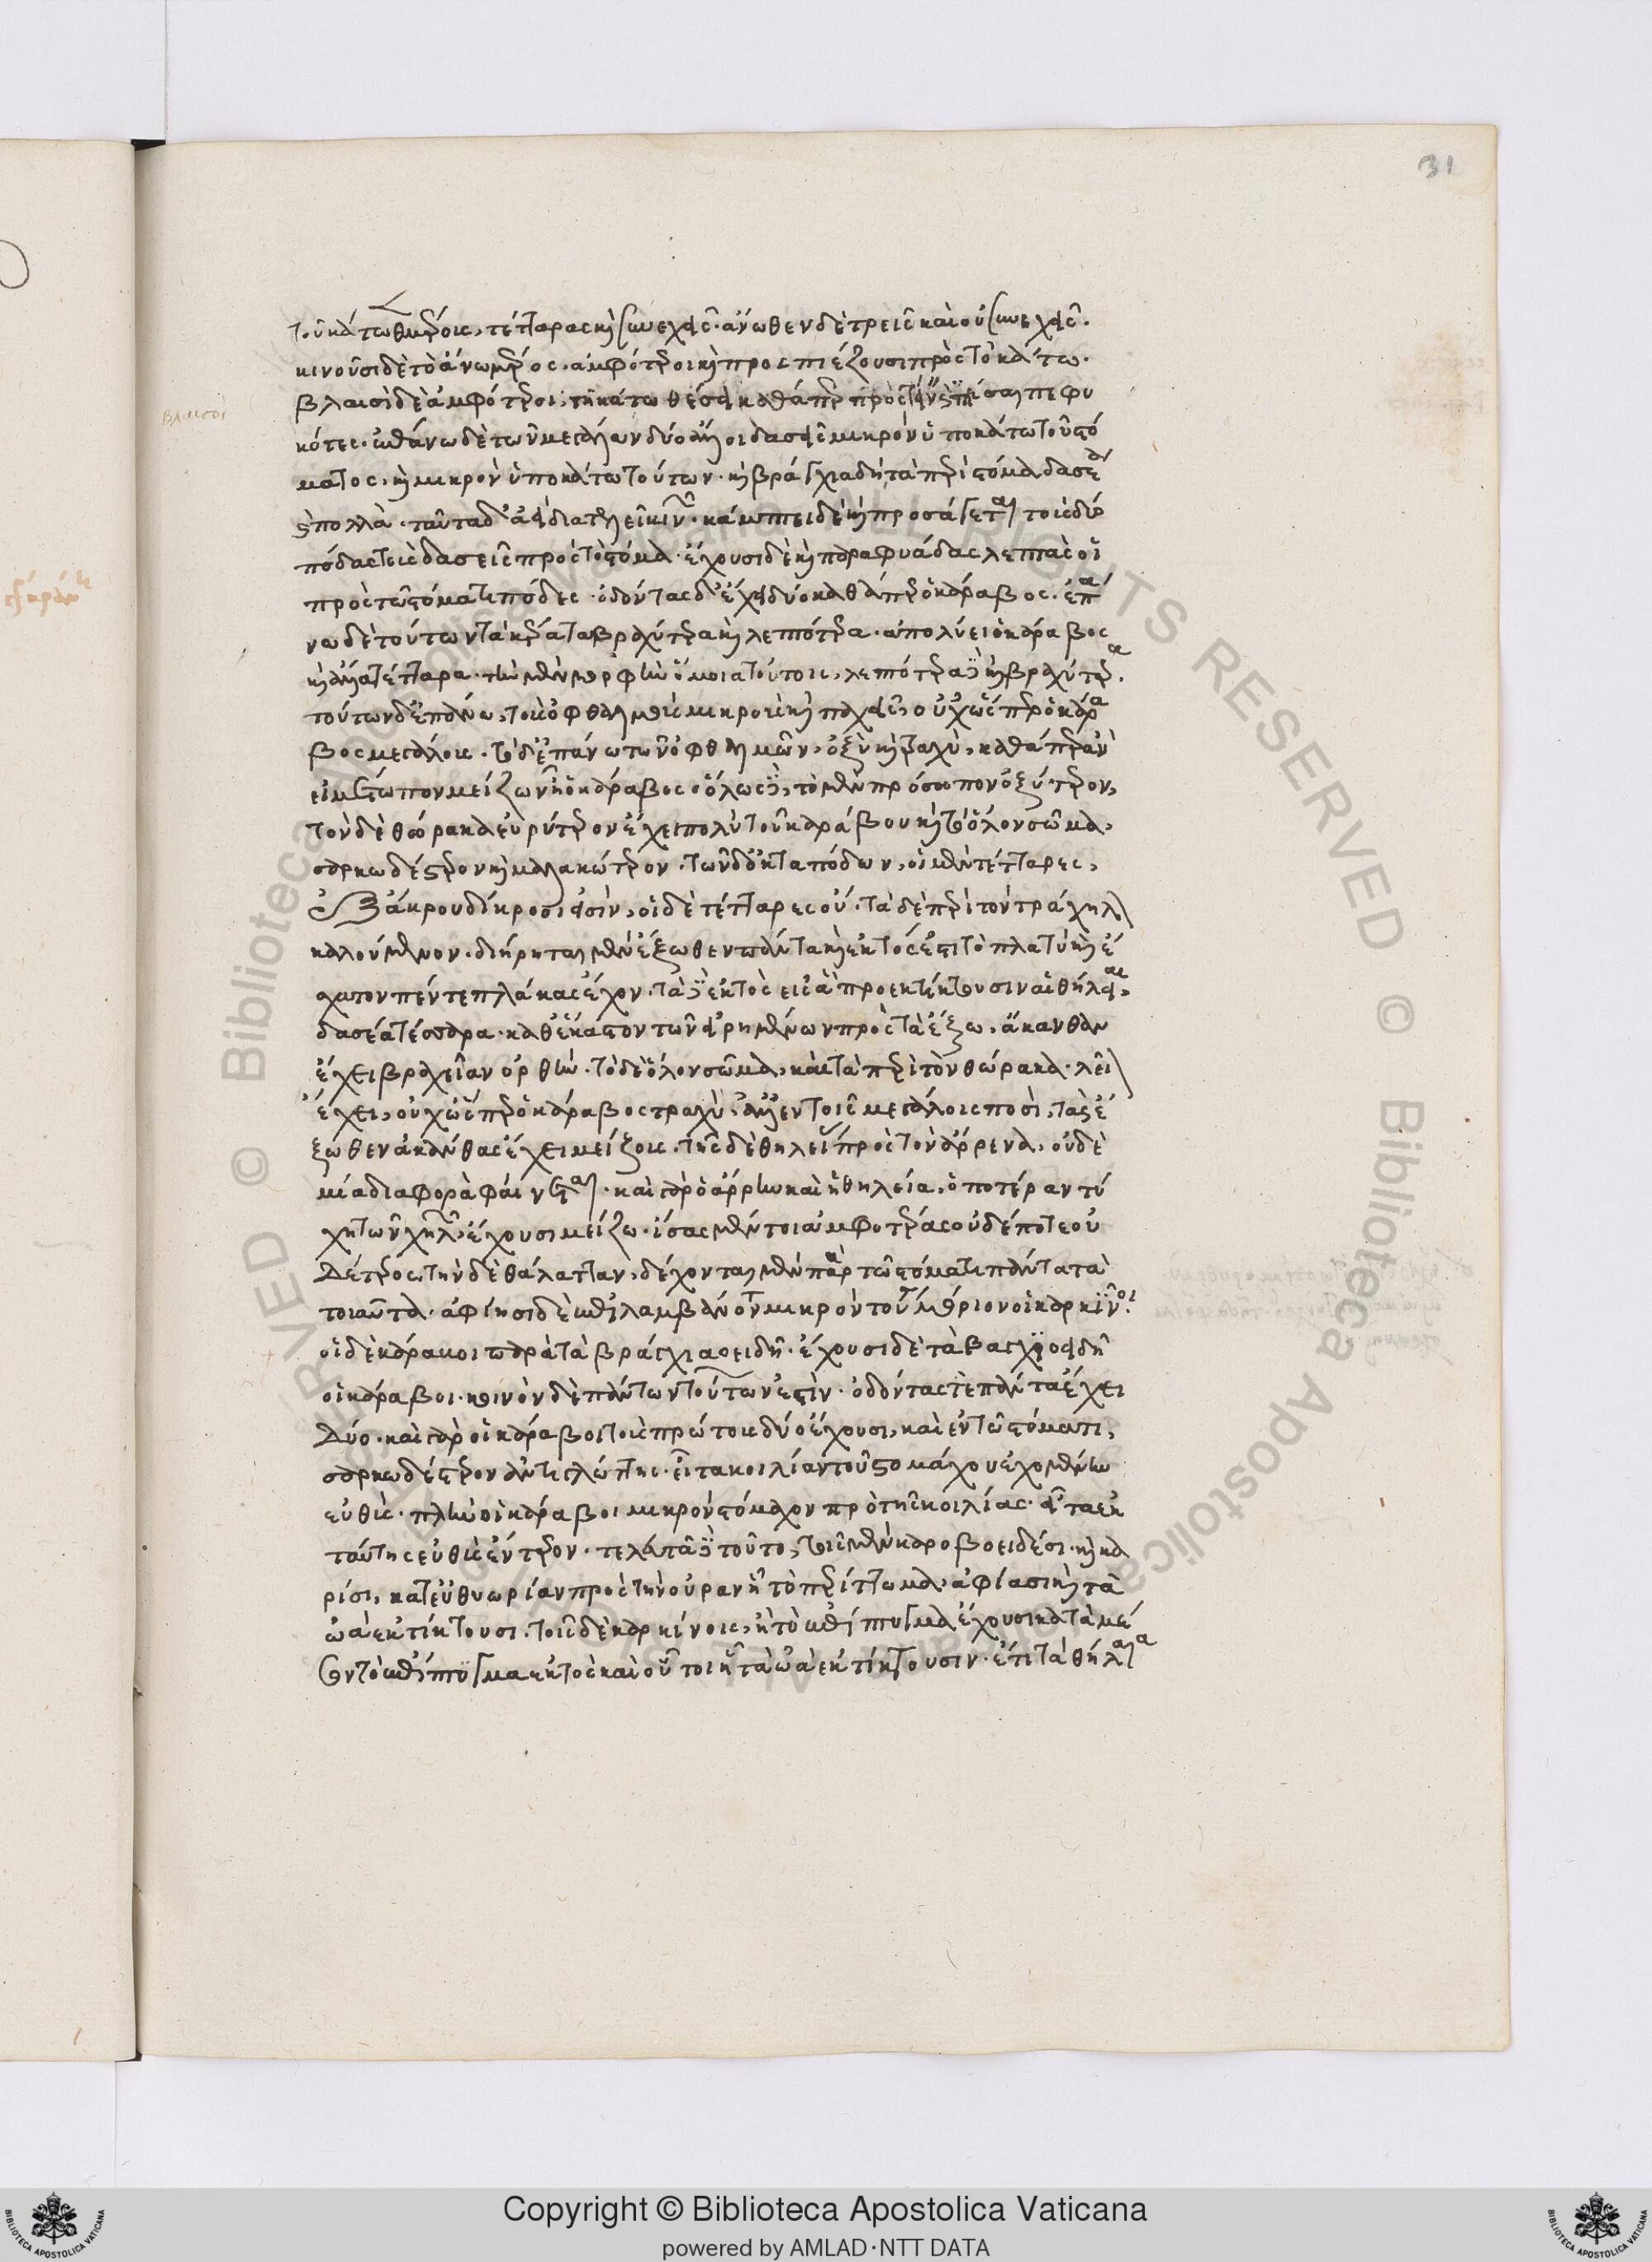 τοῦ κάτωθεν μέρους, τέτταρας καὶ συνεχεῖς· ἄνωθεν δὲ τρεῖς καὶ οὐ συνεχεῖς·
κινοῦσι δὲ τὸ ἄνω μέρος· ἀμφότεροι καὶ προσπιέζουσι πρὸς τὸ κάτω·
βλαισοὶ
βλαισοὶ δὲ ἀμφότεροι, τῇ κάτω θέσει καθάπερ πρὸς πιέσαι πεφυ
κότες· ἐπάνω δὲ τῶν μεγάλων δύο ἄλλοι δασεῖς μικρὸν ὑποκάτω τοῦ στό
ματος, καὶ μικρὸν ὑποκάτω τούτων· καὶ βραγχιώδη τὰ περὶ στόμα δασέα
καὶ πολλὰ· ταῦτα δ' ἀεὶ διατελεῖ κινῶν· κάμπτει δὲ καὶ προσάγεται τοὺς δύο
πόδας τοὺς δασεῖς πρὸς τὸ στόμα· ἔχουσι δὲ καὶ παραφυάδας λεπτὰς οἱ
πρὸς τῷ στόματι πόδες· ὀδόντας δ' ἔχει δύο καθάπερ ὁ κάραβος· ἐπά
νω δὲ τούτων τὰ κέρατα βραχύτερα καὶ λεπτότερα· ἀπολύει ὁ κάραβος
καὶ ἄλλα τέτταρα· τὴν μὲν μορφὴν ὅμοια τούτοις, λεπτότερα δὲ καὶ βραχύτερα·
τούτων δ' ἐπάνω, τοὺς ὀφθαλμοὺς μικροὺς καὶ παχεῖς, οὐχ ὥσπερ ὁ κάρα
βος μεγάλους· τὸ δ' ἐπάνω τῶν ὀφθαλμῶν, ὀξὺ καὶ τραχὺ, καθάπερ ἀν
εἰ μέτωπον μείζων ἢ ὁ κάραβος ὅλως δὲ, τὸ μὲν πρόσωπον ὀξύτερον,
τὸν δὲ θώρακα εὐρύτερον ἔχει πολὺ τοῦ καράβου καὶ τὸ ὅλον σῶμα,
σαρκωδέστερον καὶ μαλακώτερον· τῶν δ' ὀκτὼ ποδῶν, οἱ μὲν τέτταρες,
ἐξ ἄκρου δίκροοί εἰσιν, οἱ δὲ τέτταρες οὔ· τὰ δὲ περὶ τὸν τράχηλον
καλούμενον· διῄρηται μὲν ἔξωθεν πάντα καὶ ἐκτός ἐστι τὸ πλατὺ καὶ ἔ
σχατον πέντε πλάκας ἔχον· τὰ δὲ ἐντὸς εἰς ἃ προεκτίκτουσιν αἱ θήλειαι,
δασέα τέσσαρα· καθ' ἕκαστον τῶν εἰρημένων πρὸς τὰ ἔξω, ἄκανθαν
ἔχει βραχεῖαν ὀρθήν· τὸ δὲ ὅλον σῶμα, καὶ τὰ περὶ τὸν θώρακα· λεῖον
ἔχει, οὐχ ὥσπερ ὁ κάραβος τραχὺ, ἀλλ' ἐν τοῖς μεγάλοις ποσὶ, τὰς ἔ
ξωθεν ἀκάνθας ἔχει μείζους· τῆς δὲ θηλείας πρὸς τὸν ἄρρενα, οὐδε
μία διαφορὰ φαίνεται· καὶ γὰρ ὁ ἄρρην καὶ ἡ θηλεία, ὁποτέραν τύ
χῃ τῶν χηλῶν ἔχουσι μείζω· ἴσας μέντοι ἀμφοτέρας οὐδέποτε οὐ
δέτερος τὴν δὲ θάλατταν, δέχονται μὲν παρὰ τῷ στόματι πάντα τὰ
τοιαῦτα· ἀφίησι δὲ ἐπιλαμβάνοντα μικρὸν τούτου μόριον οἱ καρκίνοι·
οἱ δὲ κάρακοι παρὰ τὰ βράγχια οειδῆ· ἔχουσι δὲ τὰ βραγχιοειδῆ
οἱ κάραβοι· κοινὸν δὲ πάντων τούτων ἐστίν· ὀδόντας τε πάντα ἔχει
δύο· καὶ γὰρ οἱ κάραβοι τοὺς πρώτους δύο ἔχουσι, καὶ ἐν τῷ στόματι,
σαρκωδέστερον ἀντὶ γλώττης· εἶτα κοιλίαν τοῦ στομάχου ἐχομένην
εὐθὺς· πλὴν οἱ κάραβοι μικρὸν στόμαχον πρὸ τῆς κοιλίας· εἶτα ἐκ
ταύτης εὐθὺς ἔντερον· τελευτᾷ δὲ τοῦτο, τοῖς μὲν καραβοειδέσι· καὶ κα
ρίσι, κατ' εὐθυωρίαν πρὸς τὴν οὐρὰν ᾗ τὸ περίττωμα· ἀφίασι καὶ τὰ
ὠὰ ἐκτίκτουσι· τοῖς δὲ καρκίνοις, ᾗ τὸ ἐπίπτυγμα ἔχουσι κατὰ μέ
σον τὸ ἐπίπτυγμα ἐκτὸς καὶ οὗτοι ᾗ τὰ ὠὰ ἐκτίκτουσιν· ἔτι τὰ θήλεα
31
Copyright © Biblioteca Apostolica Vaticana
powered by AMLAD·NTT DATA